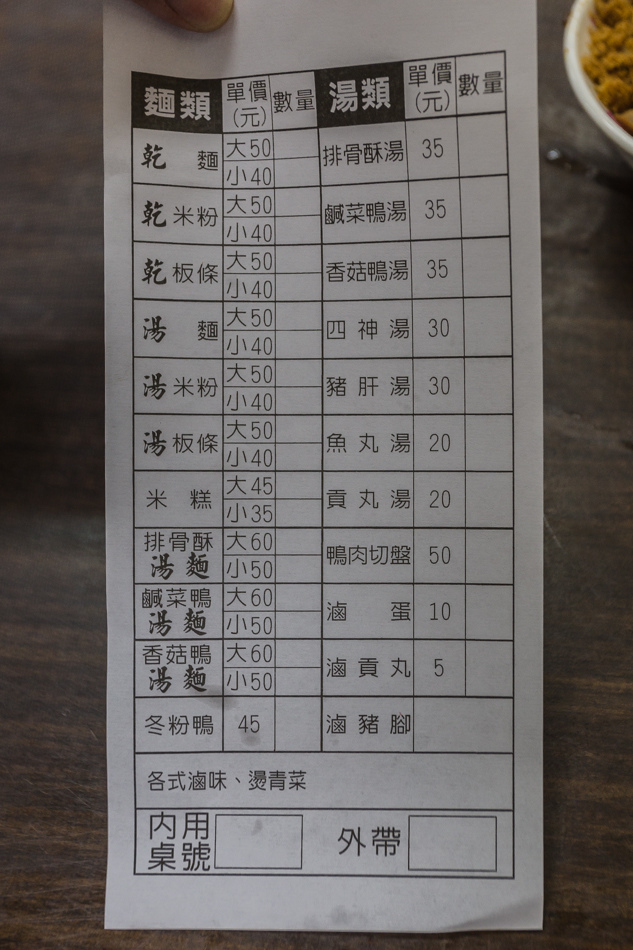 麵類 單價(元) 數量 湯類 單價(元) 數量
乾麵 大50 小40 排骨酥湯 35
乾米粉 大50 小40 鹹菜鴨湯 35
乾板條 大50 小40 香菇鴨湯 35
湯麵 大50 小40 四神湯 30
湯米粉 大50 小40 豬肝湯 30
湯板條 大50 小40 魚丸湯 20
米糕 大45 小35 貢丸湯 20
排骨酥湯麵 大60 小50 鴨肉切盤 50
鹹菜鴨湯麵 大60 小50 滷蛋 10
香菇鴨湯麵 大60 小50 滷貢丸 5
冬粉鴨 45 滷豬腳
各式滷味、燙青菜
內用桌號 外帶